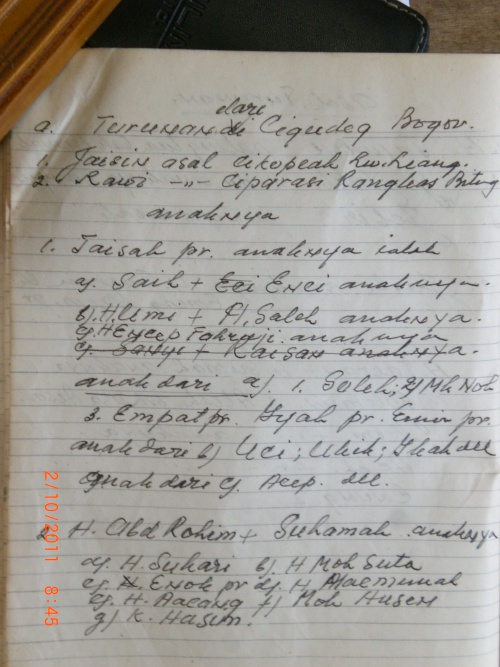 dari
a. Turunan di Cigudeg Bogor.
1. Jaisin asal cikopeak kw. Liang.
2. Rawi -"- Ciparasi Rangkas Bitung
anaknya
1. Jaisah pr. anaknya ialah
a). Saih + Eci Enci anaknya.
b). H. Umi + H. Saleh anaknya.
c). H Encep Fahroji. anaknya
c). Sanyi + Kaisan anaknya.
anak dari a). 1. Soleh, 2) Mh Noh
3. Empat pr. Iyah pr. Enur pr.
anak dari b) Uci; Ukik; Ikah dll
anak dari c). Acep. dll.
2. H. Abd Rohim + Suhamah. anaknya
a). H. Suhari b). H Moh Suta
c). H. Enok pr d). H. Maemunah
e). H. Aacang f) Moh Husen
g) K. Hasim.
2/10/2011 8:45